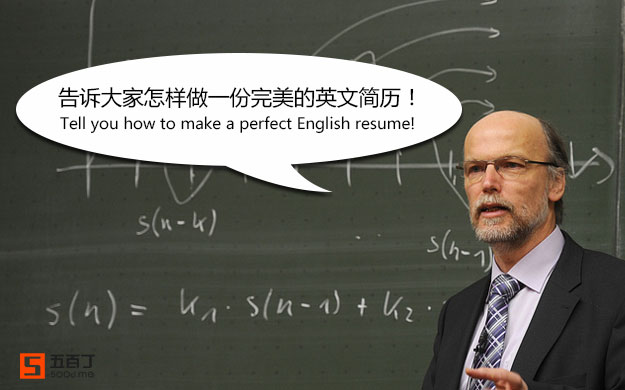 告诉大家怎样做一份完美的英文简历！
Tell you how to make a perfect English resume!
s(n-k)
s(n-1)
s(n) = k₁·s(n-1) + k₂·
五百丁
500d.me